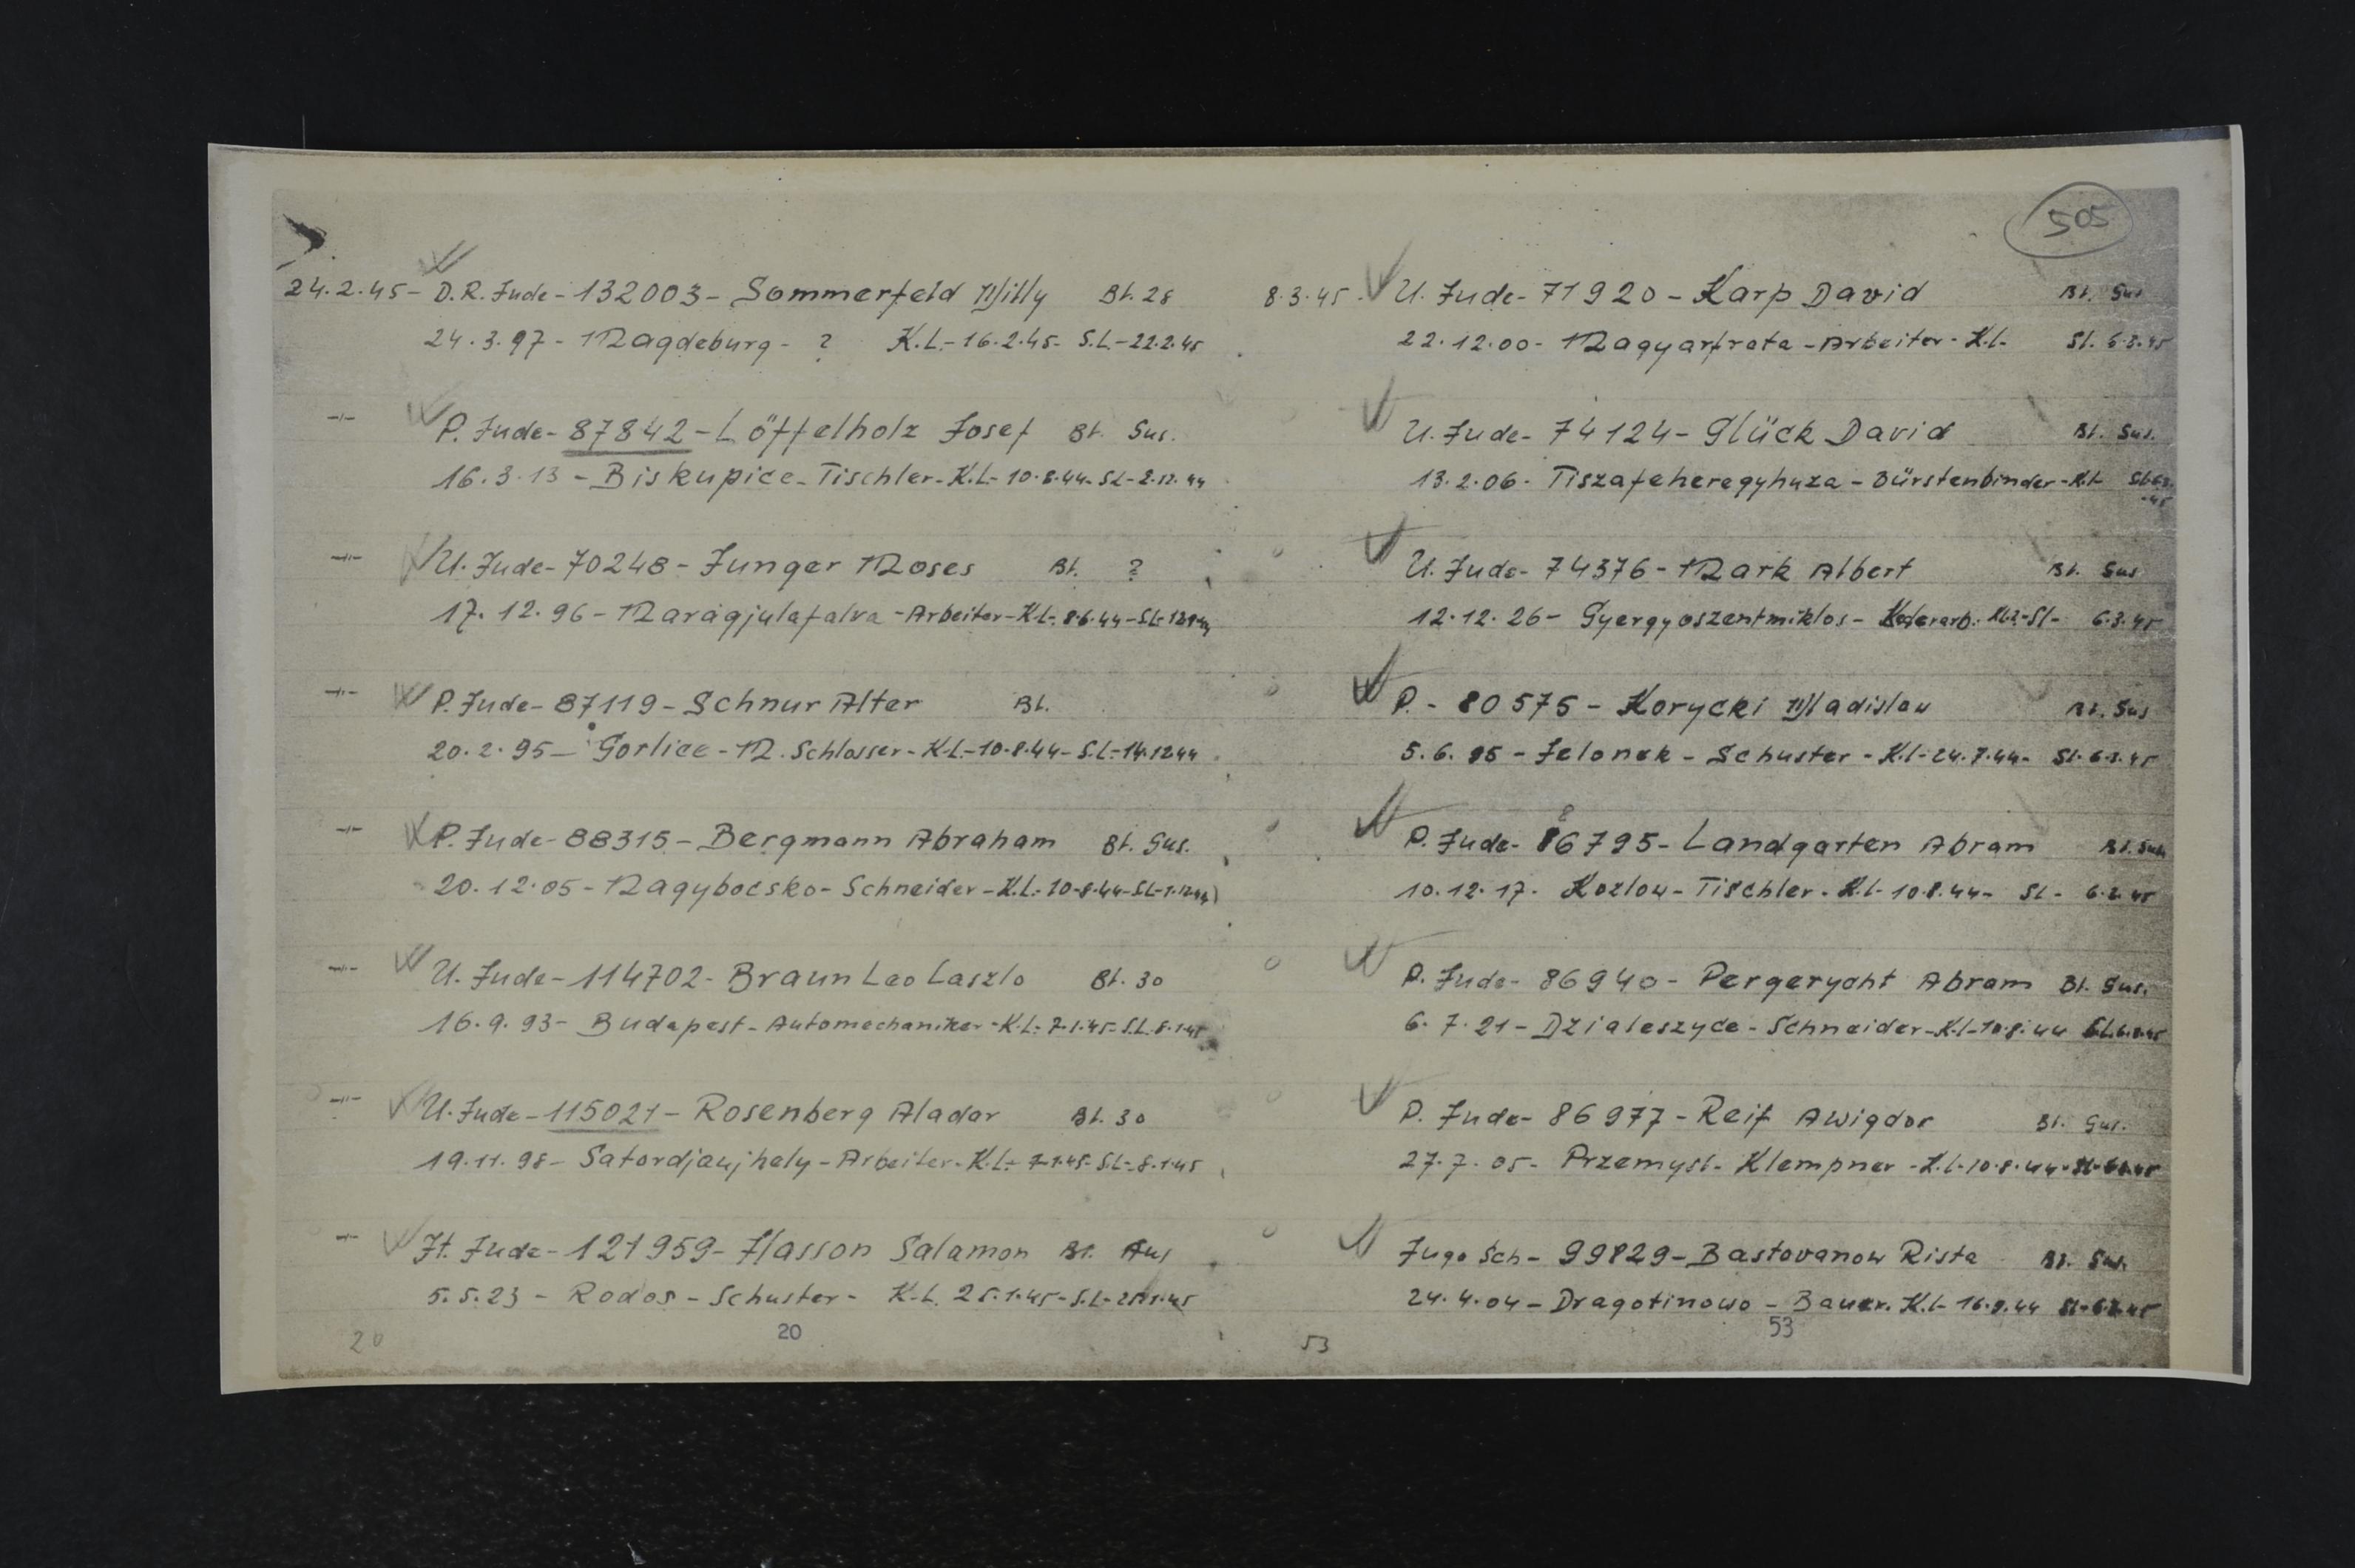 505
24.2.45- D.R. Jude - 132003 - Sommerfeld Willy Bl. 28
24.3.97 - Magdeburg - ? K.L.-16.2.45- S.L.-22.2.45
-"- P. Jude- 87842 - Löffelholz Josef Bl. Gus.
16.3.13 - Biskupice - Tischler - K.L.- 10.8.44- S.L.-2.12.44
-"- U. Jude- 70248 - Junger Moses Bl. ?
17.12.96 - Maragjulafalva - Arbeiter - K.L.- 8.6.44 - S.L.
-"- P. Jude- 87119 - Schnur Alter Bl.
20.2.95 - Gorlice - M. Schlosser - K.L.-10.8.44- S.L.-14.12.44
-"- P. Jude- 88315 - Bergmann Abraham Bl. Gus.
20.12.05 - Nagybocsko - Schneider - K.L.- 10.8.44 - S.L.
-"- U. Jude - 114702 - Braun Leo Laszlo Bl. 30
16.9.93 - Budapest - Automechaniker - K.L.- 7.1.45- S.L. 8.1.45
-"- U. Jude - 115021 - Rosenberg Alador Bl. 30
19.11.98 - Satordjaujhely - Arbeiter - K.L.- 7.1.45- S.L.- 8.1.45
-"- It. Jude - 121959 - Hasson Salamon Bl.
5.5.23 - Rodos - Schuster - K.L. 25.1.45 - S.L.
20 20
8.3.45 - U. Jude - 71920 - Karp David Bl. Gus
22.12.00 - Magyarfrata - Arbeiter - K.l.- Sl. 6.3.45
U. Jude - 74124 - Glück David Bl. Gus.
13.2.06 - Tiszafeheregyhuza - Bürstenbinder - K.l. Sl. 6.3.
-45
U. Jude - 74376 - Mark Albert Bl. Gus
12.12.26 - Gyergyoszentmiklos - Sl- 6.3.45
P. - 80575 - Korycki Wladislau Bl. Gus
5.6.95 - Jelonek - Schuster - K.l.-24.7.44- Sl. 6.3.45
8
P. Jude - 86795 - Landgarten Abram Bl. Gus
10.12.17 - Kozlow - Tischler - K.l.- 10.8.44 - Sl - 6.3.45
P. Jude - 86940 - Pergerycht Abram Bl. Gus.
6.7.21 - Dzialeszyce - Schneider - K.l.-10.8.44 S.l. 6.3.45
P. Jude - 86977 - Reif Awigdor Bl. Gus.
27.7.05 - Przemysl - Klempner - K.l.-10.8.44 - Sl-6.3.45
Jugo Sch - 99829 - Bastovanow Rista Bl. Gus.
24.4.04 - Dragotinowo - Bauer. K.l.- 16.9.44 Sl-6.3.45
53 53